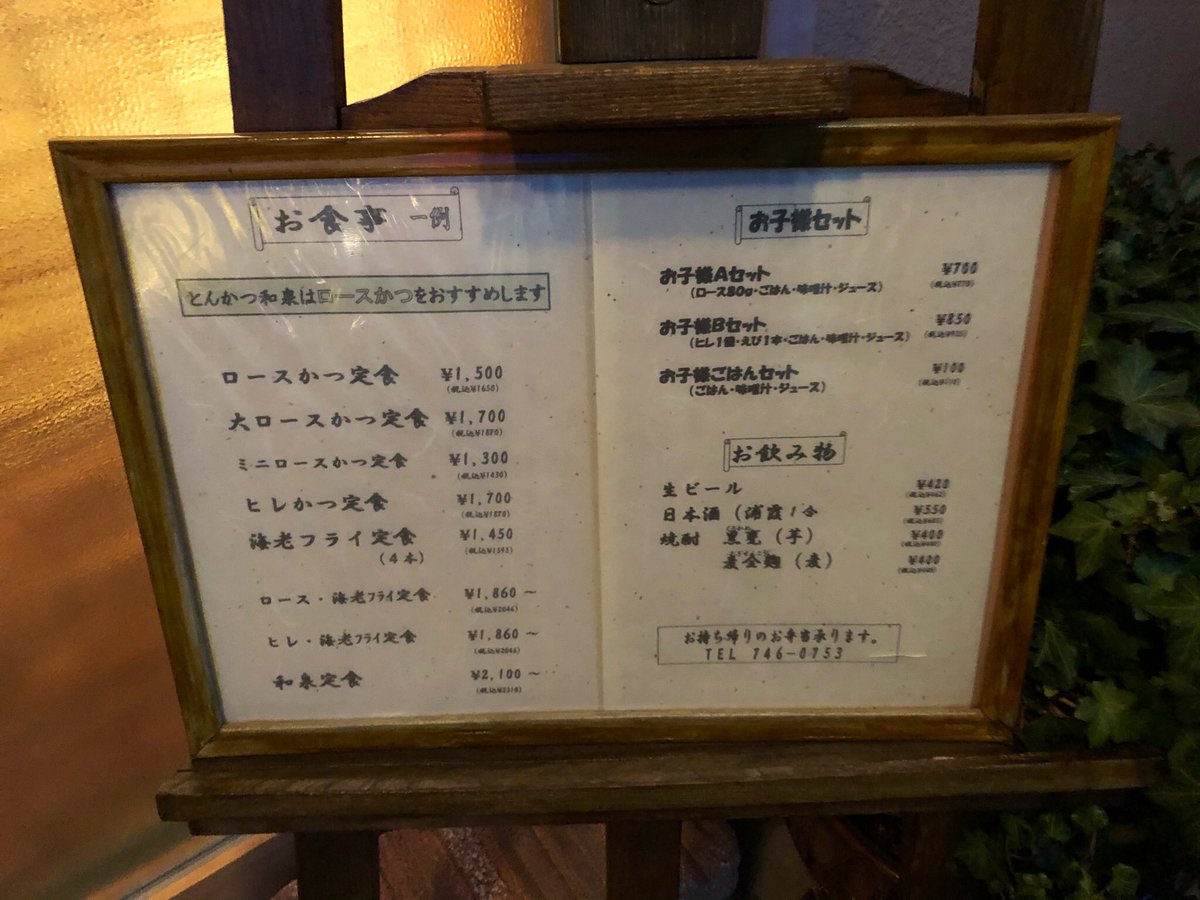 お食事 一例
とんかつ和泉はロースかつをおすすめします
ロースかつ定食 ¥1,500
(税込¥1650)
大ロースかつ定食 ¥1,700
(税込¥1870)
ミニロースかつ定食 ¥1,300
(税込¥1430)
ヒレかつ定食 ¥1,700
(税込¥1870)
海老フライ定食 ¥1,450
(4本) (税込¥1595)
ロース・海老フライ定食 ¥1,860~
(税込¥2046)
ヒレ・海老フライ定食 ¥1,860~
(税込¥2046)
和泉定食 ¥2,100~
(税込¥2310)
お子様セット
お子様Aセット ¥700
(ロース80g・ごはん・味噌汁・ジュース) (税込¥770)
お子様Bセット ¥850
(ヒレ1個・えび1本・ごはん・味噌汁・ジュース) (税込¥935)
お子様ごはんセット ¥100
(ごはん・味噌汁・ジュース) (税込¥110)
お飲み物
生ビール ¥420
(税込¥462)
日本酒(浦霞1合 ¥550
(税込¥605)
焼酎 黒甕(芋) ¥400
(税込¥440)
(麦) ¥400
(税込¥440)
お持ち帰りのお弁当承ります。
TEL 746-0753